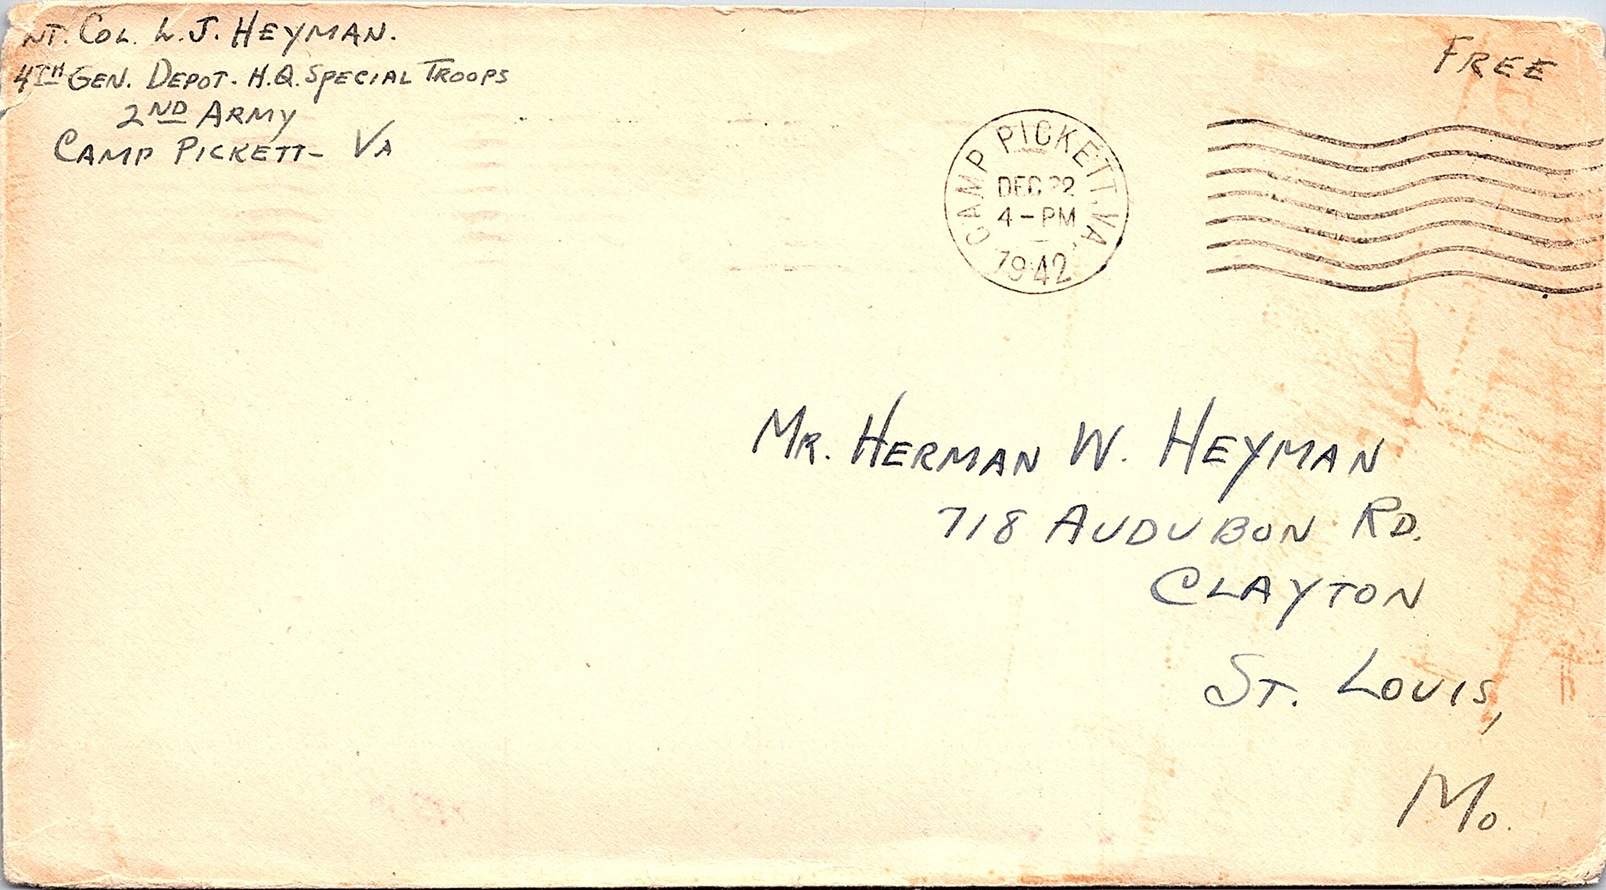 LT. COL. L. J. HEYMAN.
4TH GEN. DEPOT. H.Q. SPECIAL TROOPS
2ND ARMY
CAMP PICKETT- VA
FREE
CAMP PICKETT, VA.
DEC 22
4-PM
1942
MR. HERMAN W. HEYMAN
718 AUDUBON RD.
CLAYTON
ST. LOUIS,
MO.